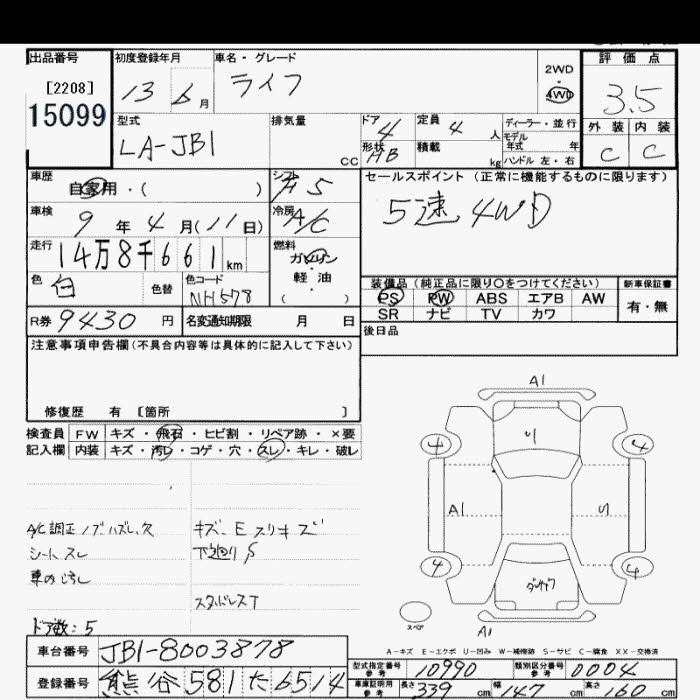 出品番号 初度登録年月 車名・グレード 評価点
[2208] 15099 13 6月 ライフ 2WD 4WD 3.5
型式 排気量 ドア 定員 ディーラー・並行 外装 内装
LA-JB1 cc 4 4人 モデル年式 年 C C
形状 HB 積載 kg ハンドル 左・右
車歴 自家用・( ) シフト F5 セールスポイント (正常に機能するものに限ります)
車検 9年4月(11日) 冷房 A/C 5速 4WD
走行 14万8千661km 燃料 ガソリン・軽油 ( ・ )
色 白 色替 色コード NH578 装備品 (純正品に限り○をつけてください) 新車保証書
PS PW ABS エアB AW 有・無
SR ナビ TV カワ
R券 9430円 名変通知期限 月 日 後日品
注意事項申告欄 (不具合内容等は具体的に記入して下さい)
修復歴 有 [箇所 ]
検査員 FW キズ・飛石・ヒビ割・リペア跡・×要
記入欄 内装 キズ・汚レ・コゲ・穴・スレ・キレ・破レ
A1
4 U 4
A1 U
4 4
ダンサプ
スペア
A1
A/C調正ノブハズレ、欠 キズ、E スリキズ
シートスレ 下廻りS
車内汚し
スタッドレスT
ドア数:5
A-キズ E-エクボ U-凹み W-補修跡 S-サビ C-腐食 XX-交換済
車台番号 JB1-8003878
型式指定番号 参考 10990 類別区分番号 参考 0004
登録番号 熊谷 581 た 6514
車庫証明用 参考 長さ 339cm 幅 147cm 高さ 160cm